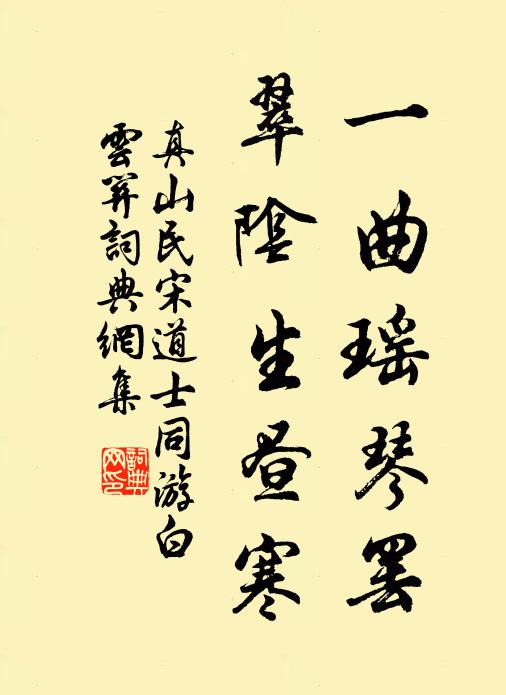 一曲瑶琴罢
翠陰生昼寒
真山民宋道士同游白
雲笄詞典網集
詞典
网印